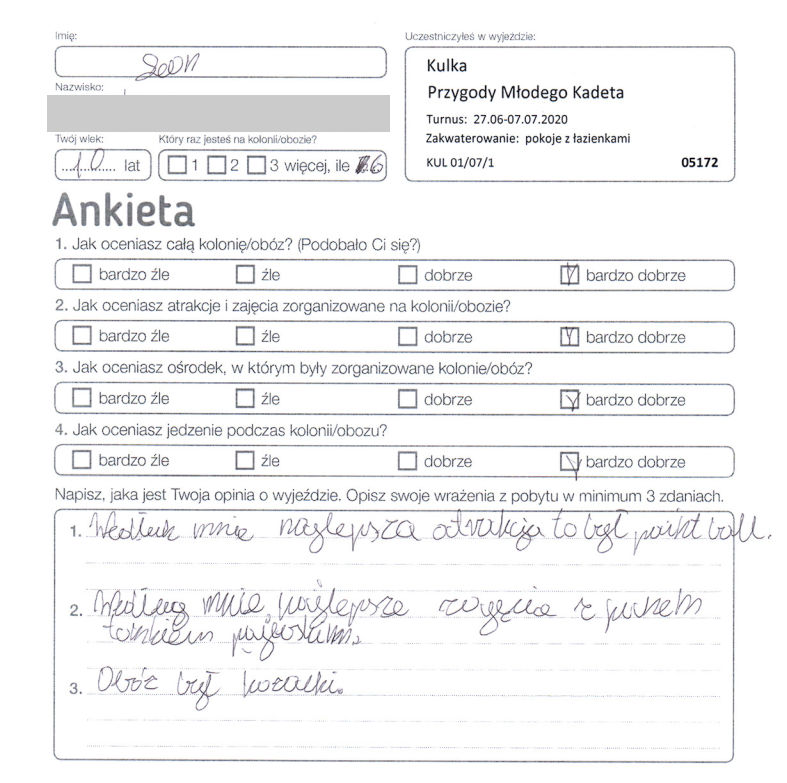 Imię:
Leon
Nazwisko:
Twój wiek:
10 lat
Który raz jesteś na kolonii/obozie?
1 2 3 więcej, ile 6
Uczestniczyłeś w wyjeździe:
Kulka
Przygody Młodego Kadeta
Turnus: 27.06-07.07.2020
Zakwaterowanie: pokoje z łazienkami
KUL 01/07/1 05172
Ankieta
1. Jak oceniasz całą kolonię/obóz? (Podobało Ci się?)
bardzo źle źle dobrze bardzo dobrze
2. Jak oceniasz atrakcje i zajęcia zorganizowane na kolonii/obozie?
bardzo źle źle dobrze bardzo dobrze
3. Jak oceniasz ośrodek, w którym były zorganizowane kolonie/obóz?
bardzo źle źle dobrze bardzo dobrze
4. Jak oceniasz jedzenie podczas kolonii/obozu?
bardzo źle źle dobrze bardzo dobrze
Napisz, jaka jest Twoja opinia o wyjeździe. Opisz swoje wrażenia z pobytu w minimum 3 zdaniach.
1. Wedłuk mnie najlepsza atrakcja to był paint ball.
2. Według mnie najlepsze zajęcia z panem
3. Obóz był kozacki.